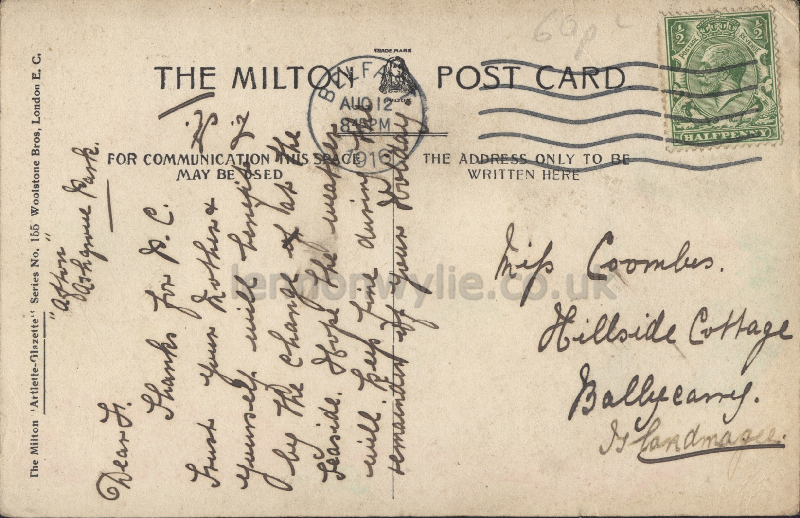 60p
TRADE MARK
THE MILTON POST CARD
MILTON
BELFAST
AUG 12
8 45 PM
1916
½ ½
HALFPENNY
FOR COMMUNICATION THIS SPACE
MAY BE USED
THE ADDRESS ONLY TO BE
WRITTEN HERE
The Milton "Artlette-Glazette" Series No. 155 Woolstone Bros, London E. C.
"Afton"
Ashgrove Park.
Dear F.
Thanks for P.C.
Trust your Mother &
yourself will benefit
by the change of at the
seaside. Hope the weather
will keep fine during the
remainder of your Holiday
Miss Coombes.
Hillside Cottage
Ballycarry.
Islandmagee.
lennonwylie.co.uk